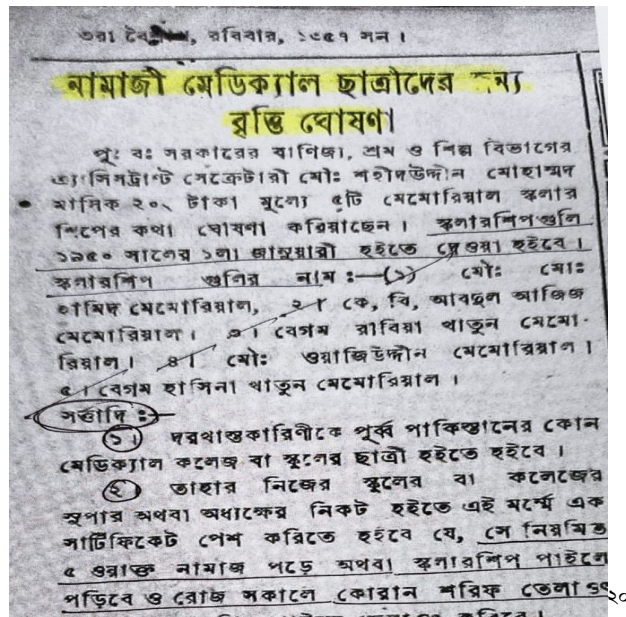 ৩রা বৈশাখ, রবিবার, ১৩৫৭ সন।
নামাজী মেডিক্যাল ছাত্রীদের জন্য
বৃত্তি ঘোষণা
পূঃ বঃ সরকারের বাণিজ্য, শ্রম ও শিল্প বিভাগের
এ্যাসিসট্যাণ্ট সেক্রেটারী মৌঃ শহীদউদ্দীন মোহাম্মদ
মাসিক ২০৲ টাকা মূল্যে ৫টি মেমোরিয়াল স্কলার
শিপের কথা ঘোষণা করিয়াছেন। স্কলারশিপগুলি
১৯৫০ সালের ১লা জানুয়ারী হইতে দেওয়া হইবে।
স্কলারশিপ গুলির নাম :—(১) মৌঃ মোঃ
হামিদ মেমোরিয়াল, ২। কে, বি, আবদুল আজিজ
মেমোরিয়াল। ৩। বেগম রাবিয়া খাতুন মেমো-
রিয়াল। ৪। মৌঃ ওয়াজিউদ্দীন মেমোরিয়াল।
৫। বেগম হাসিনা খাতুন মেমোরিয়াল।
সর্ত্তাদি :—
১। দরখাস্তকারিণীকে পূর্ব্ব পাকিস্তানের কোন
মেডিক্যাল কলেজ বা স্কুলের ছাত্রী হইতে হইবে।
২। তাহার নিজের স্কুলের বা কলেজের
সুপার অথবা অধ্যক্ষের নিকট হইতে এই মর্ম্মে এক
সার্টিফিকেট পেশ করিতে হইবে যে, সে নিয়মিত
৫ ওয়াক্ত নামাজ পড়ে অথবা স্কলারশিপ পাইলে
পড়িবে ও রোজ সকালে কোরান শরিফ তেলাওৎ